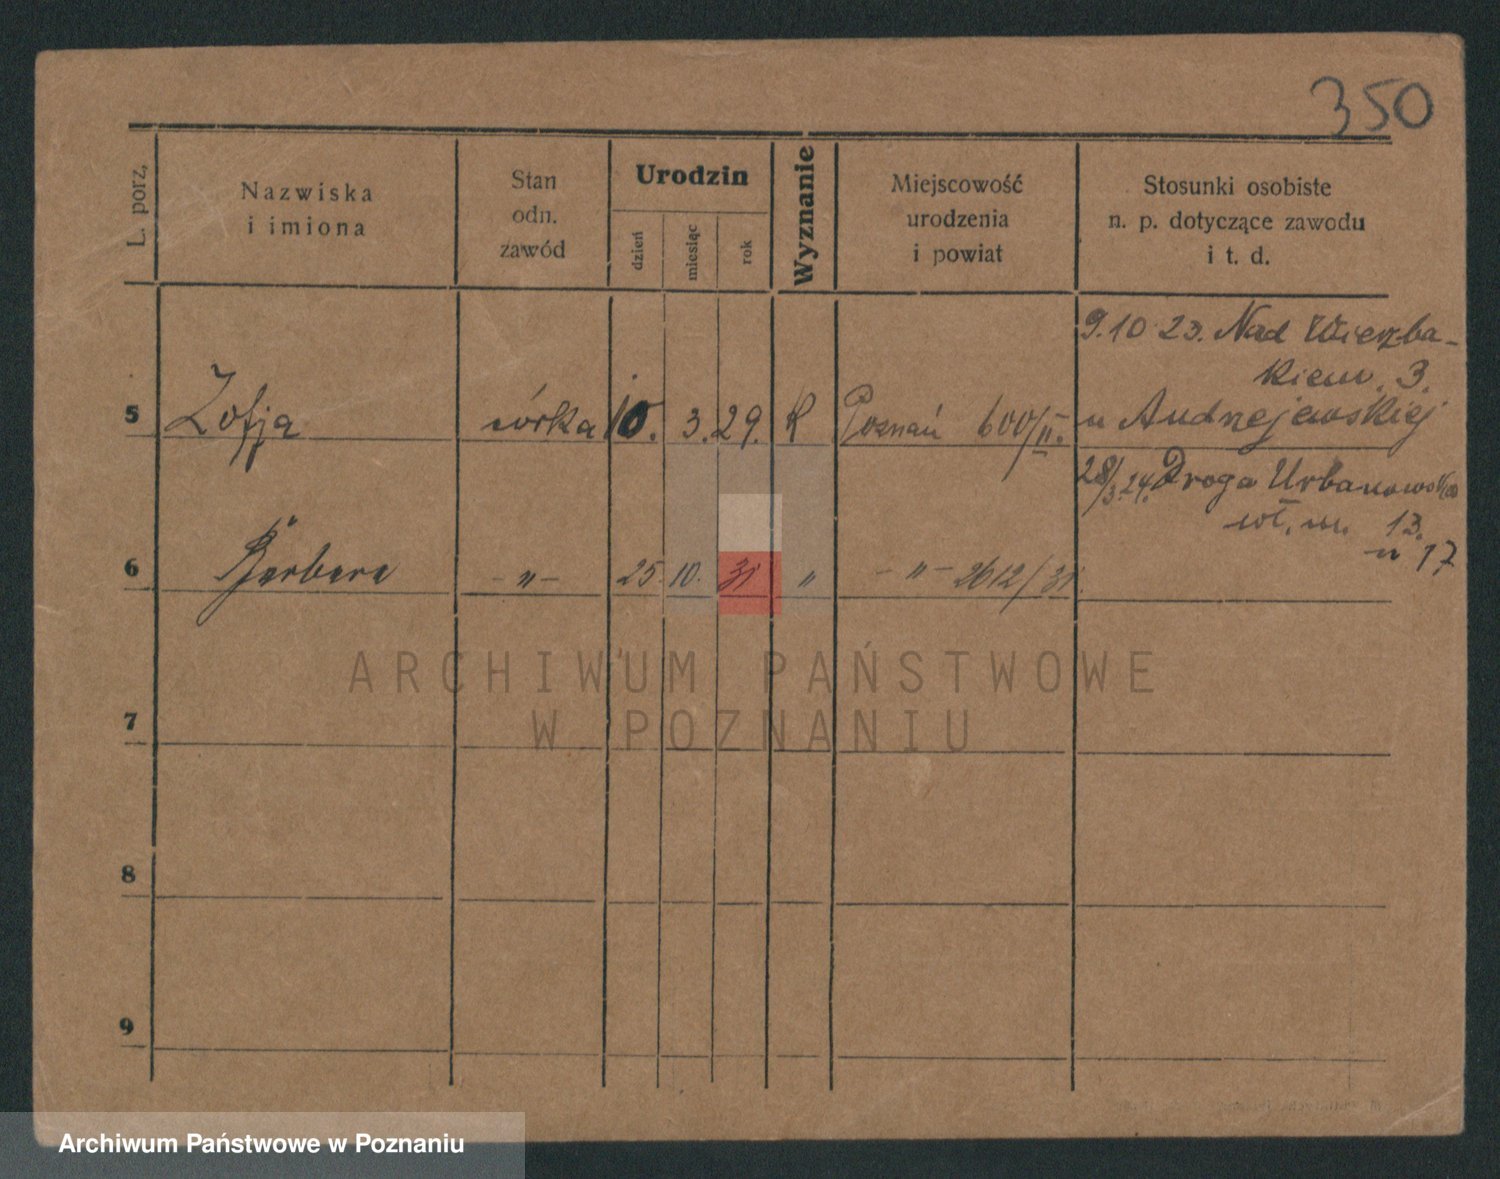 350
L. porz.
Nazwiska
i imiona
Stan
odn.
zawód
Urodzin
dzień
miesiąc
rok
Wyznanie
Miejscowość
urodzenia
i powiat
Stosunki osobiste
n. p. dotyczące zawodu
i t. d.
9.10 23. Nad Wierzba-
kiem. 3.
5 Zofja córka 10. 3. 29. K Poznań 600/II. u Andrzejewskiej
28/3.24. Droga Urbanowska
wł. nr. 13.
" 17
6 Barbara -"- 25. 10. 31 " -"- 2612/31.
7
8
9
ARCHIWUM PAŃSTWOWE
W POZNANIU
Archiwum Państwowe w Poznaniu